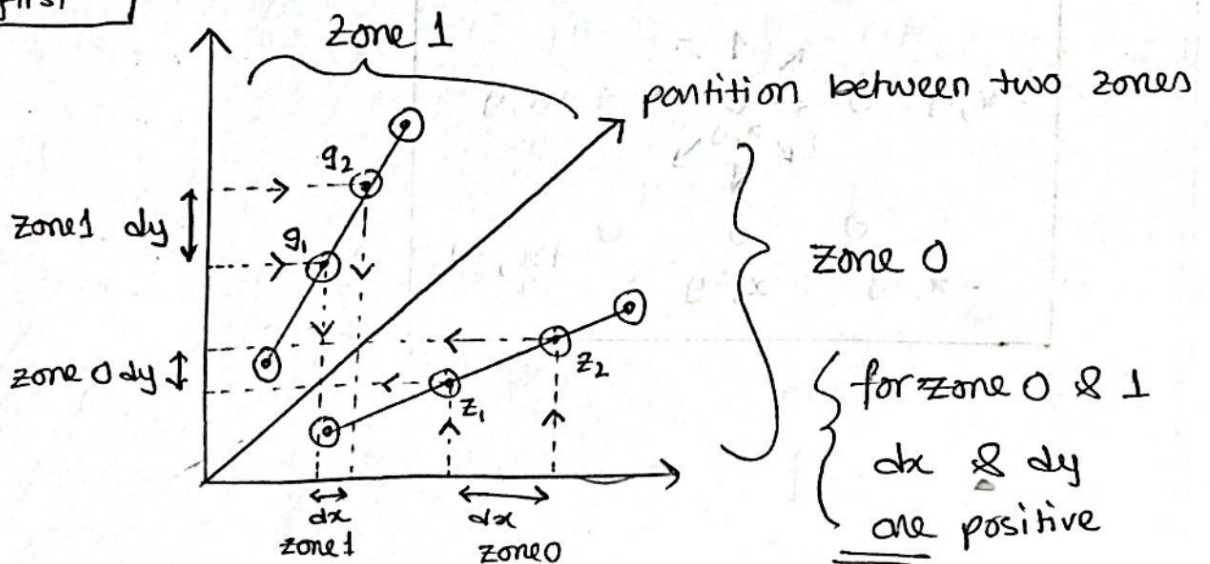 first
Zone 1
partition between two zones
g2
zone1 dy
g1
zone 0
zone 0 dy
z2
z1
for zone 0 & 1
dx & dy
are positive
dx
zone1
dx
zone0